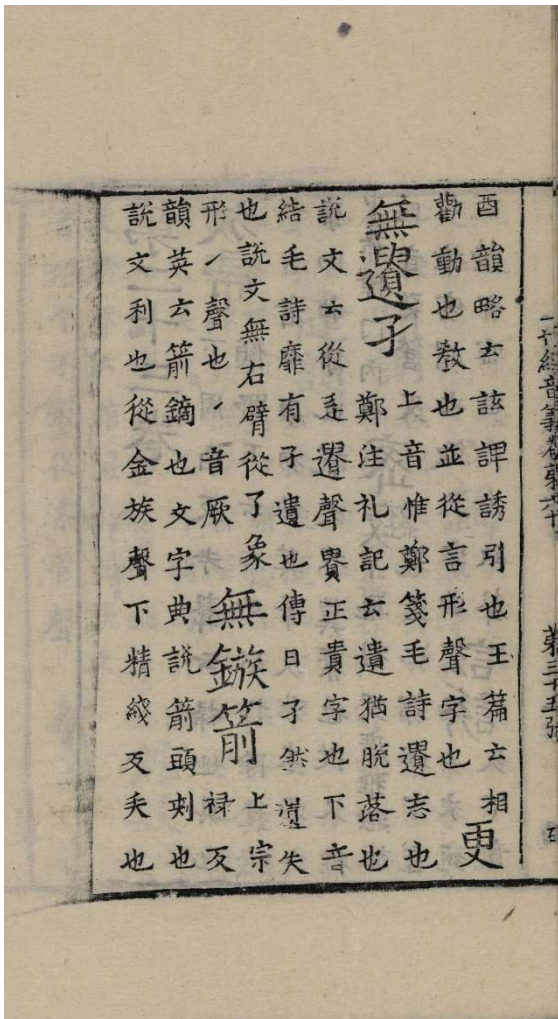 一切經音義卷第六十 第三十五張
酉韻略云詃誘引也玉篇云相
勸動也教也並從言形聲字也
更
無遺孑
上音惟鄭箋毛詩遺忘也
鄭注礼記云遺猶脫落也
說文云從辵𧷢聲𧷢正貴字也下音
結毛詩靡有孑遺也傳曰孑然遺失
也說文無右臂從了象
形丿聲也丿音厥
無鏃箭
上宗
禄反
韻英云箭鏑也文字典說箭頭刾也
說文利也從金族聲下精綫反矢也